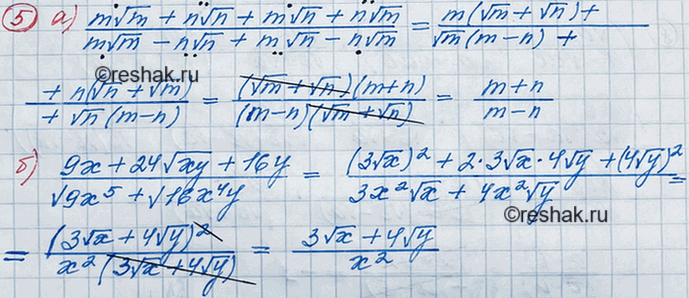 5 а) (m√m + n√n + m√n + n√m)/(m√m − n√n + m√n − n√m) = (m(√m + √n) +)/(√m(m−n) +)
©reshak.ru
(+ n(√n + √m))/(+ √n(m−n)) = ((√m + √n)(m+n))/((m−n)(√m + √n)) = (m+n)/(m−n)
б) (9x + 24√xy + 16y)/(√9x⁵ + √16x⁴y) = ((3√x)² + 2·3√x·4√y + (4√y)²)/(3x²√x + 4x²√y) =
©reshak.ru
= (3√x + 4√y)²/(x²(3√x + 4√y)) = (3√x + 4√y)/x²